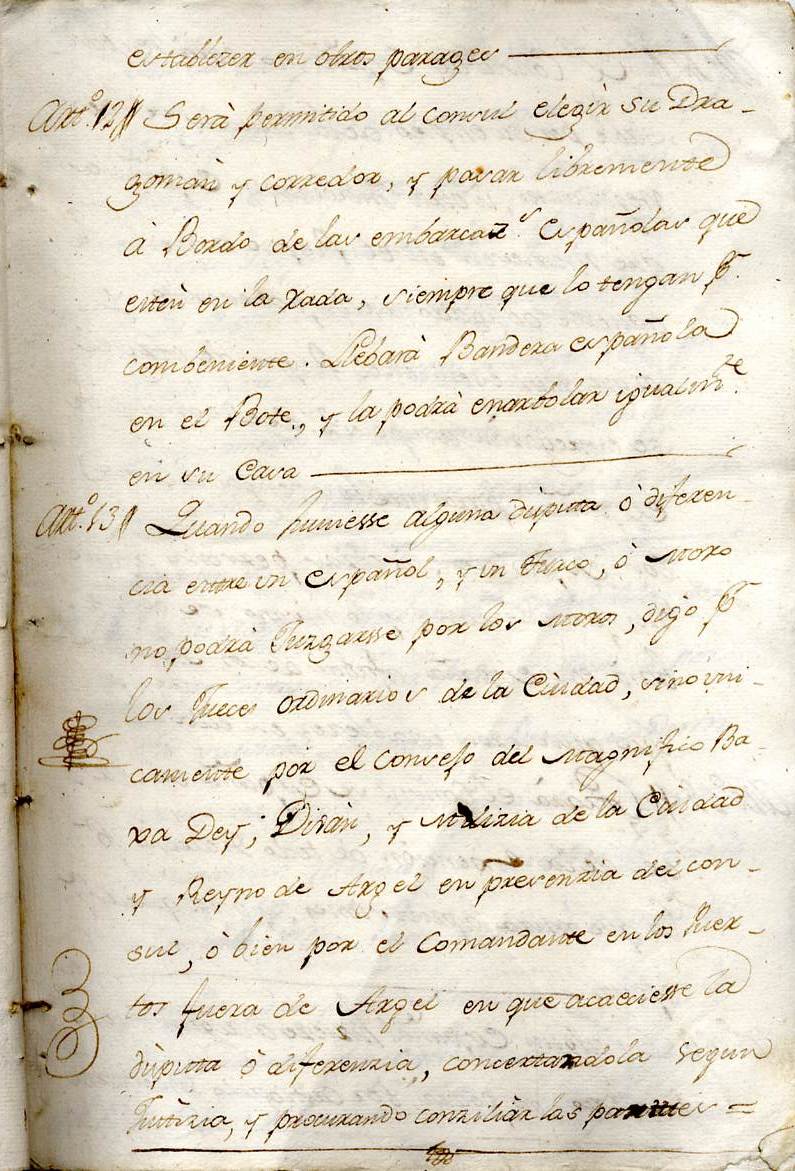 establezer en otros parages
Artt.º 12 // Serà permitido al consul elegir su Dra-
goman y corredor, y pasar libremente
à Bordo de las embarcaz.s españolas que
estèn en la Rada, siempre que lo tengan p.r
combeniente. Llebarà Bandera española
en el Bote, y la podrà enarbolar igualm.te
en su Casa
Artt.º 13 // Quando huviesse alguna disputta ò diferen-
cia entre un español, y un Turco, ò Moro
no podrà Juzgarsse por los Moros, digo p.r
los Jueces ordinarios de la Ciudad, sino uni-
camente por el Consejo del Magnifico Ba-
xa Dey, Divàn, y Milizia de la Ciudad
y Reyno de Argel en presenzia del con-
sul, ò bien por el Comandante en los Puer-
tos fuera de Argel en que acaeciesse la
disputta ò diferenzia, concertandola segun
Justizia, y procurando conziliàr las partes =